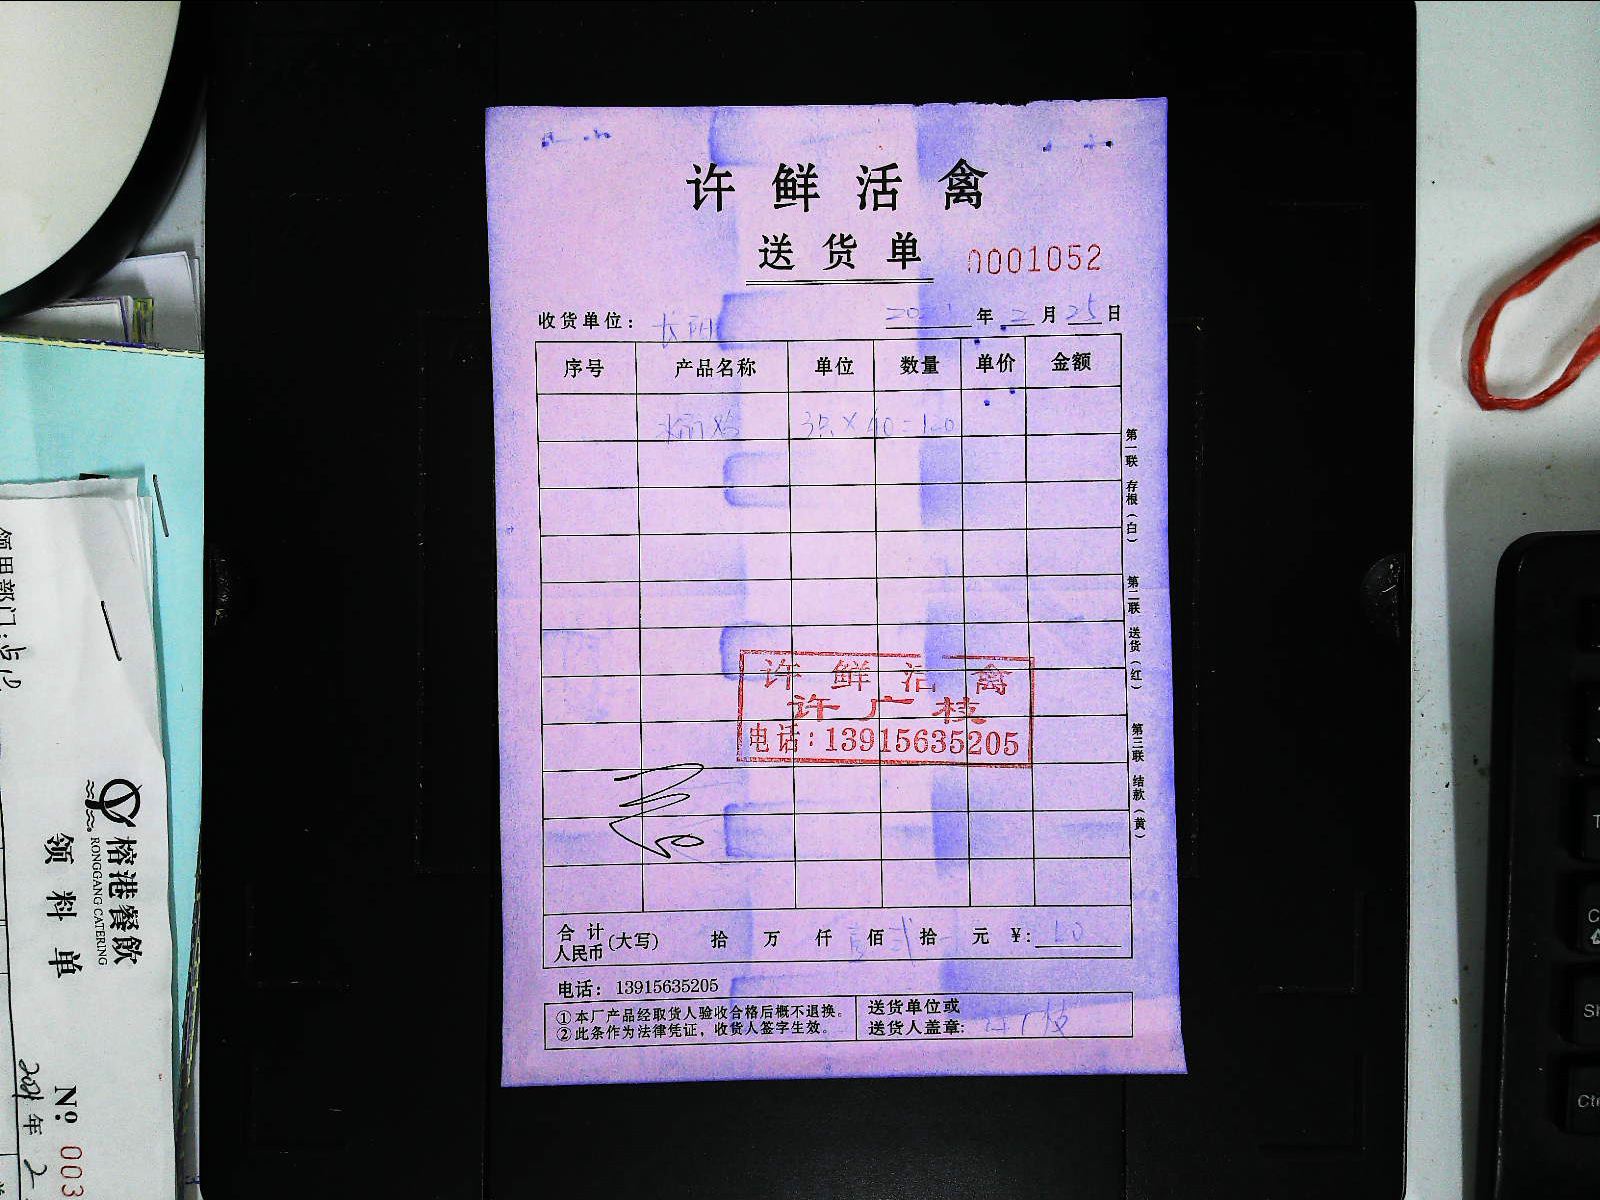 许鲜活禽
送货单 0001052
收货单位： 2021年2月25日
序号 产品名称 单位 数量 单价 金额
3只×40=120
第一联 存根（白）
第二联 送货（红）
第三联 结款（黄）
许鲜活禽
许广枝
电话:13915635205
合计人民币(大写) 拾 万 仟 壹佰 贰拾 元 ¥:
电话：13915635205
①本厂产品经取货人验收合格后概不退换。
②此条作为法律凭证，收货人签字生效。
送货单位或
送货人盖章: 许广枝
榕港餐飲
RONGGANG CATERING
领料单
领用部门:
2021年2
№ 003